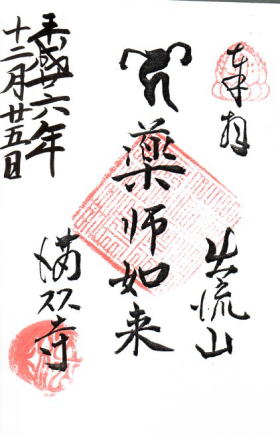 奉拝
出流山
藥師如来
満願寺
平成廿六年
十二月廿五日